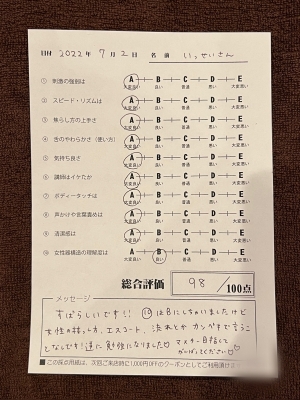 日付 2022年 7月2日 名前 いっせいさん
① 刺激の強弱は A B C D E
大変良い 良い 普通 悪い 大変悪い
② スピード・リズムは A B C D E
大変良い 良い 普通 悪い 大変悪い
③ 焦らし方の上手さ A B C D E
大変良い 良い 普通 悪い 大変悪い
④ 舌のやわらかさ(使い方) A B C D E
大変良い 良い 普通 悪い 大変悪い
⑤ 気持ち良さ A B C D E
大変良い 良い 普通 悪い 大変悪い
⑥ 講師はイケたか A B C D E
大変良い 良い 普通 悪い 大変悪い
⑦ ボディータッチは A B C D E
大変良い 良い 普通 悪い 大変悪い
⑧ 声かけや言葉責めは A B C D E
大変良い 良い 普通 悪い 大変悪い
⑨ 清潔感は A B C D E
大変良い 良い 普通 悪い 大変悪い
⑩ 女性器構造の理解度は A B C D E
大変良い 良い 普通 悪い 大変悪い
総合評価 98 /100点
メッセージ
すばらしいです!! ⑩はBにしちゃいましたけど
女性の扱い方、エスコート、流れとか カンペキで言うこ
となしです!逆に勉強になりました♡ マスター目指して
がんばってください♡
■この採点用紙は、次回ご来店時に1,000円OFFのクーポンとしてご利用頂けます